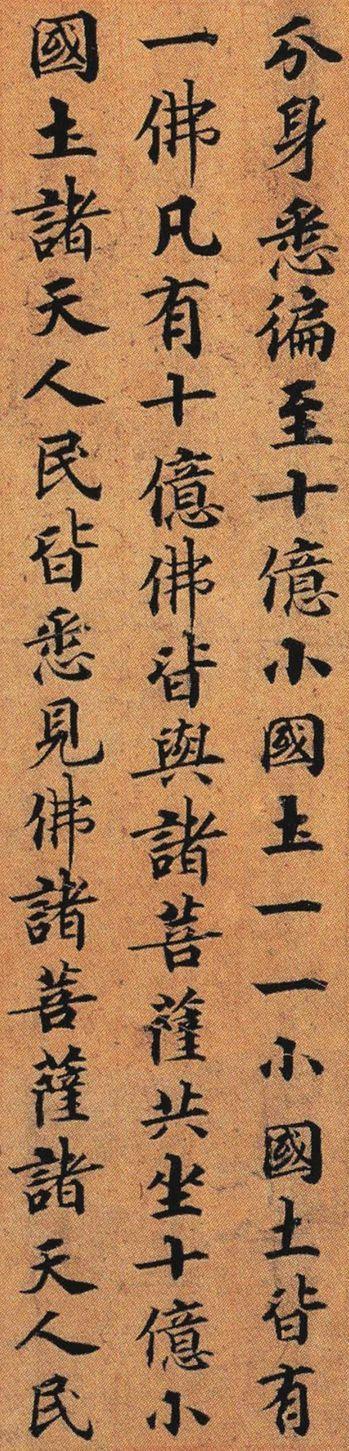 分身悉徧至十億小國土一一小國土皆有
一佛凡有十億佛皆與諸菩薩共坐十億小
國土諸天人民皆悉見佛諸菩薩諸天人民